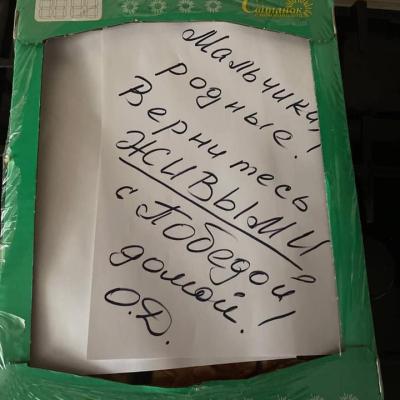 Світанок
Мальчики,
родные.
Вернитесь
ЖИВЫМИ
с Победой
домой.!
О.Д.